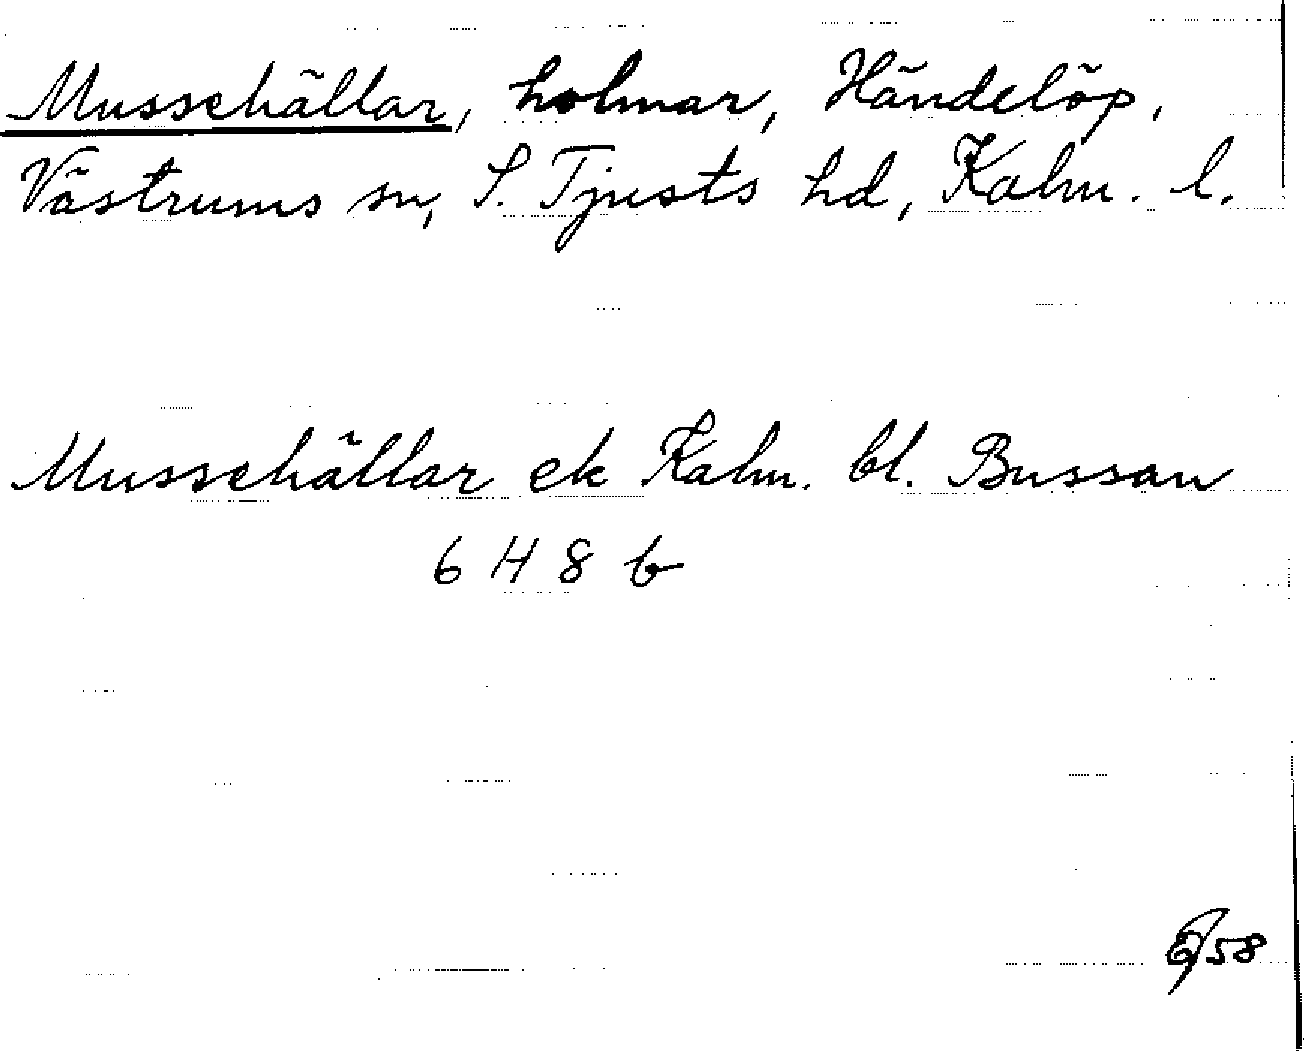 Mussehällar, holmar, Händelöp,
Västrums sn, S. Tjusts hd, Kalm. l.
Mussehällar ek Kalm. bl. Bussan
6 H 8 b
58